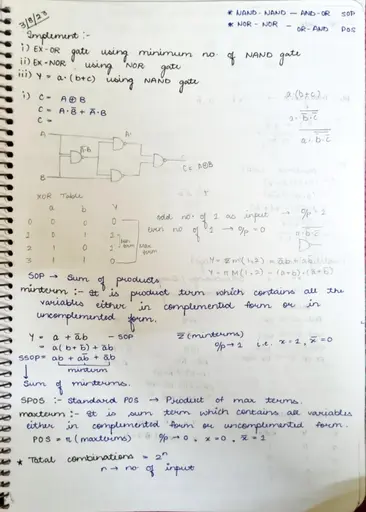 3/8/23
* NAND-NAND — AND-OR SOP
* NOR-NOR — OR-AND POS
Implement :-
i) EX-OR gate using minimum no. of NAND gate
ii) EX-NOR using NOR gate
iii) Y = a·(b+c) using NAND gate
i) C = A⊕B
C = A·B̅ + A̅·B
C =
a·(b+c)
A
B
C = A⊕B
XOR Table
a b Y
0 0 0 0
1 0 1 1
2 1 0 1
3 1 1 0
min term
Max term
odd no. of 1 as input → O/p = 1
even no of 1 → O/p = 0
SOP → Sum of products
minterm :- It is product term which contains all the
variables either in complemented form or in
uncomplemented form.
Y = a + a̅b — SOP
= a(b+b̅) + a̅b
SSOP = ab + ab̅ + a̅b
minterm
Sum of minterms.
Σ(minterms)
O/p → 1 i.e. x = 1, x̅ = 0
SPOS :- Standard POS → Product of max terms.
maxterm :- It is sum term which contains all variables
either in complemented form or uncomplemented form.
POS = π(maxterms) O/p → 0, x = 0, x̅ = 1
* Total combinations = 2ⁿ
n → no of input